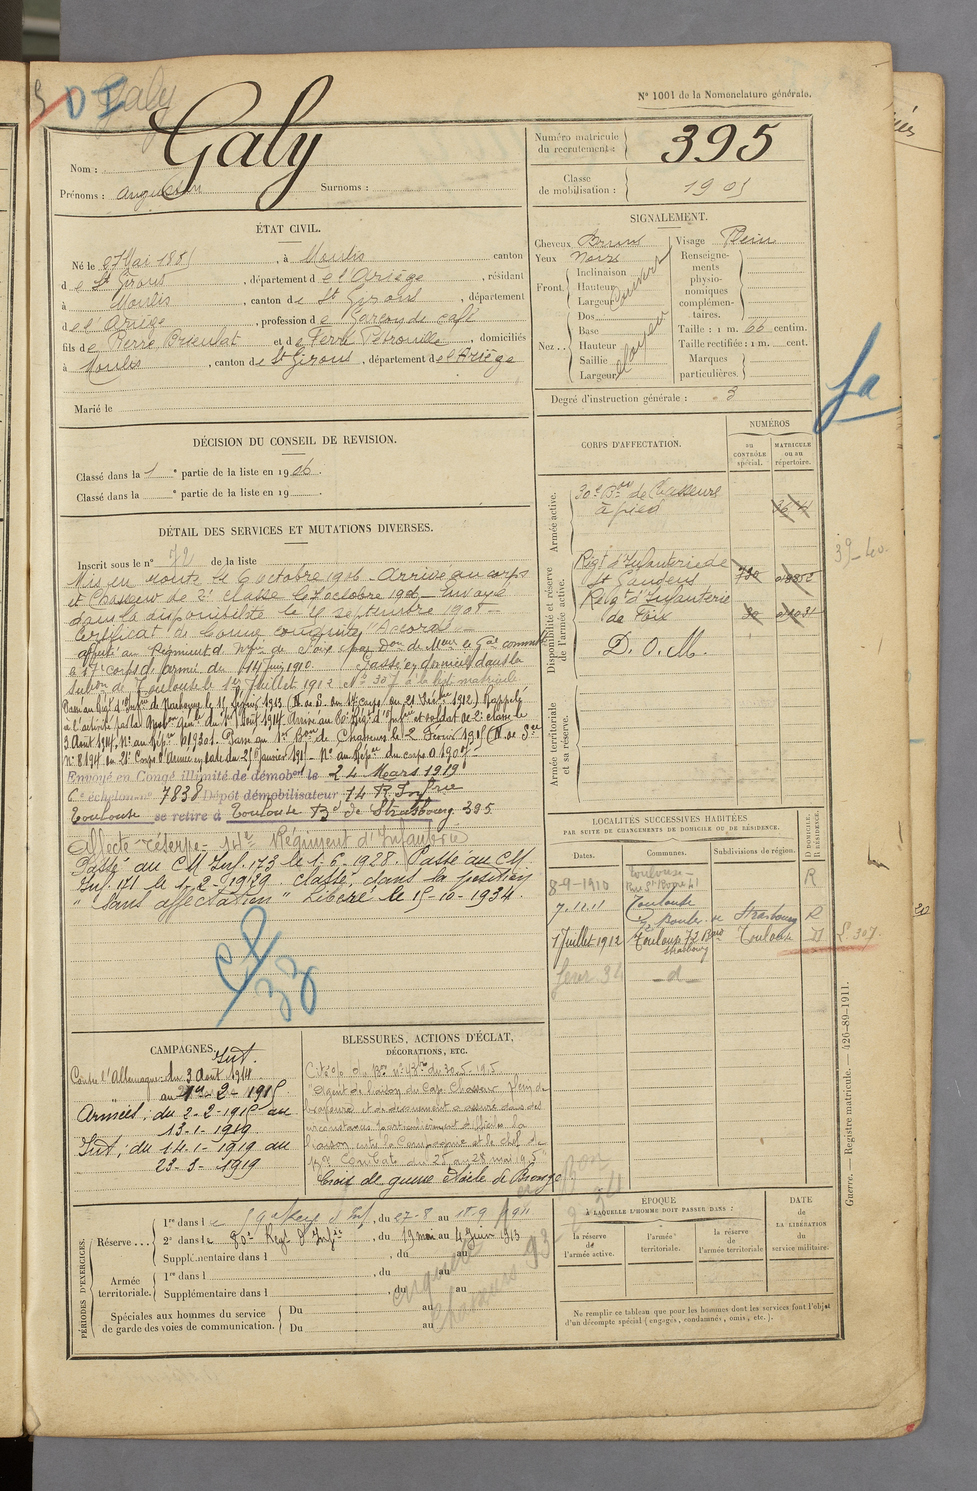 Galy
D I
N° 1001 de la Nomenclature générale.
Nom : Galy
Prénoms : Augustin Surnoms :
Numéro matricule du recrutement : 395
Classe de mobilisation : 1905
ÉTAT CIVIL.
Né le Mai 1885, à Moulis canton
de St Girons, département de l'Ariège, résidant
à Moulis, canton de St Girons, département
de l'Ariège, profession de Garçon de café
fils de Pierre, Brieulat et de Ferré Pétronille, domiciliés
à Moulis, canton de St Girons, département de l'Ariège
Marié le
SIGNALEMENT.
Cheveux Bruns
Yeux Noirs
Front. Inclinaison
Hauteur
Largeur
Nez... Dos
Base
Hauteur
Saillie
Largeur
moyen
Visage Plein
Renseignements physionomiques complémentaires.
Taille : 1 m. 66 centim.
Taille rectifiée : 1 m. cent.
Marques particulières.
Degré d'instruction générale : 3
DÉCISION DU CONSEIL DE REVISION.
Classé dans la 1e partie de la liste en 1906.
Classé dans la e partie de la liste en 19
DÉTAIL DES SERVICES ET MUTATIONS DIVERSES.
Inscrit sous le n° 72 de la liste
Mis en route le 6 octobre 1906 - Arrivé au corps
et Chasseur de 2e classe le 7 octobre 1906 - Envoyé
dans la disponibilité le septembre 1908 -
Certificat de bonne conduite "Accordé"
affecté au Régiment d' de Foix par de Mr le Gal commdt
le 17e corps d'armée du 14 Juin 1910. Passé en domicile dans la
Subon de Toulouse le 1er Juillet 1912 N° 307 à la list matricule
Passé au Régt d'Infrie de Narbonne le 15 1913 Rappelé
à l'activité par la Mobon génle du 1er Août 1914 Arrivé au 80e Régt d'Infrie et soldat de 2e classe le
3 Août 1914. N° au Répre 019301. Passé au 1er Bon de Chasseurs le 2 Février 1915 (N. de Sce
N° 8194 du 21e Corps d'Armée en date du 25 Janvier 1915 - N° au Répre du corps
Envoyé en Congé illimité de démobon le 24 Mars 1919
6e échelon n° 7838 Dépôt démobilisateur 14 R Infrie
Toulouse se retire à Toulouse Bd de Strasbourg 395
Affecté réserve - 14e Régiment d'Infanterie
Passé au CM Inf. 173 le 1-6-1928. Passé au CM
Inf. 171 le 1-2-1929 classé, dans la position
"Sans affectation" Libéré le 15-10-1934.
CORPS D'AFFECTATION.
NUMÉROS
au CONTRÔLE spécial.
MATRICULE ou au répertoire.
Armée active.
30e Bon de Chasseurs
à pied
Disponibilité et réserve de l'armée active.
Régt d'Infanterie de
St Gaudens
Régt d'Infanterie
de Foix
D. O. M.
Armée territoriale et sa réserve.
39-40
LOCALITÉS SUCCESSIVES HABITÉES
PAR SUITE DE CHANGEMENTS DE DOMICILE OU DE RÉSIDENCE.
Dates. Communes. Subdivisions de région. D. DOMICILE. R. RÉSIDENCE.
8-9-1910 Toulouse - R
7.11.11 Toulouse
72 Boulev. de Strasbourg R
1 Juillet 1912 Toulouse 72 Bard Strasbourg Toulouse D L 307
-d-
CAMPAGNES.
Int.
Contre l'Allemagne du 3 Août 1914
au 1er-2-1915
Armées : du 2-2-1915 au
13-1-1919
Int. du 14-1-1919 au
23-3-1919
BLESSURES, ACTIONS D'ÉCLAT,
DÉCORATIONS, ETC.
Cité o/o du Bon du 30.5.1915
"Agent de liaison du Cap. Chasseur plein de
bravoure et de dévouement a assuré dans des
circonstances particulièrement difficiles la
liaison entre la Compagnie et le chef de
Bon Combats du 25 au 28 mai 1915"
Croix de guerre Étoile de Bronze
PÉRIODES D'EXERCICES.
Réserve... 1re dans le 59e Régt d'Inf, du 27-8 au 18-9 1911
2e dans le 80e Régt d'Infrie, du 19 mai au 4 Juin 1913
Supplémentaire dans l , du au
Armée territoriale. 1re dans l , du au
Supplémentaire dans l , du au
Spéciales aux hommes du service de garde des voies de communication. Du au
Du au
ÉPOQUE
À LAQUELLE L'HOMME DOIT PASSER DANS :
la réserve de l'armée active.
l'armée territoriale.
la réserve de l'armée territoriale
DATE de LA LIBÉRATION du service militaire.
Ne remplir ce tableau que pour les hommes dont les services font l'objet
d'un décompte spécial (engagés, condamnés, omis, etc.).
Guerre. — Registre matricule. — 426-89-1911.